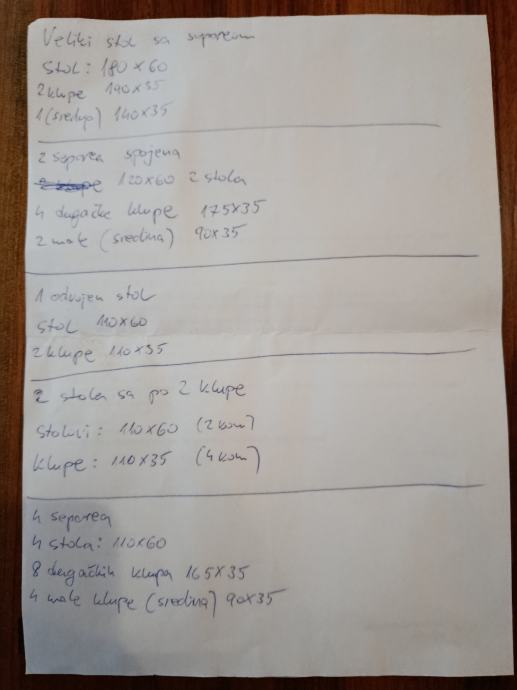 Veliki stol sa separeom
Stol: 180x60
2 klupe 190x35
1 (srednja) 140x35
2 separea spojena
120x60 2 stola
4 dugačke klupe 175x35
2 male (sredina) 90x35
1 odvojen stol
stol 110x60
2 klupe 110x35
2 stola sa po 2 klupe
stolovi: 110x60 (2 kom)
klupe: 110x35 (4 kom)
4 separea
4 stola: 110x60
8 dugačkih klupa 165x35
4 male klupe (sredina) 90x35